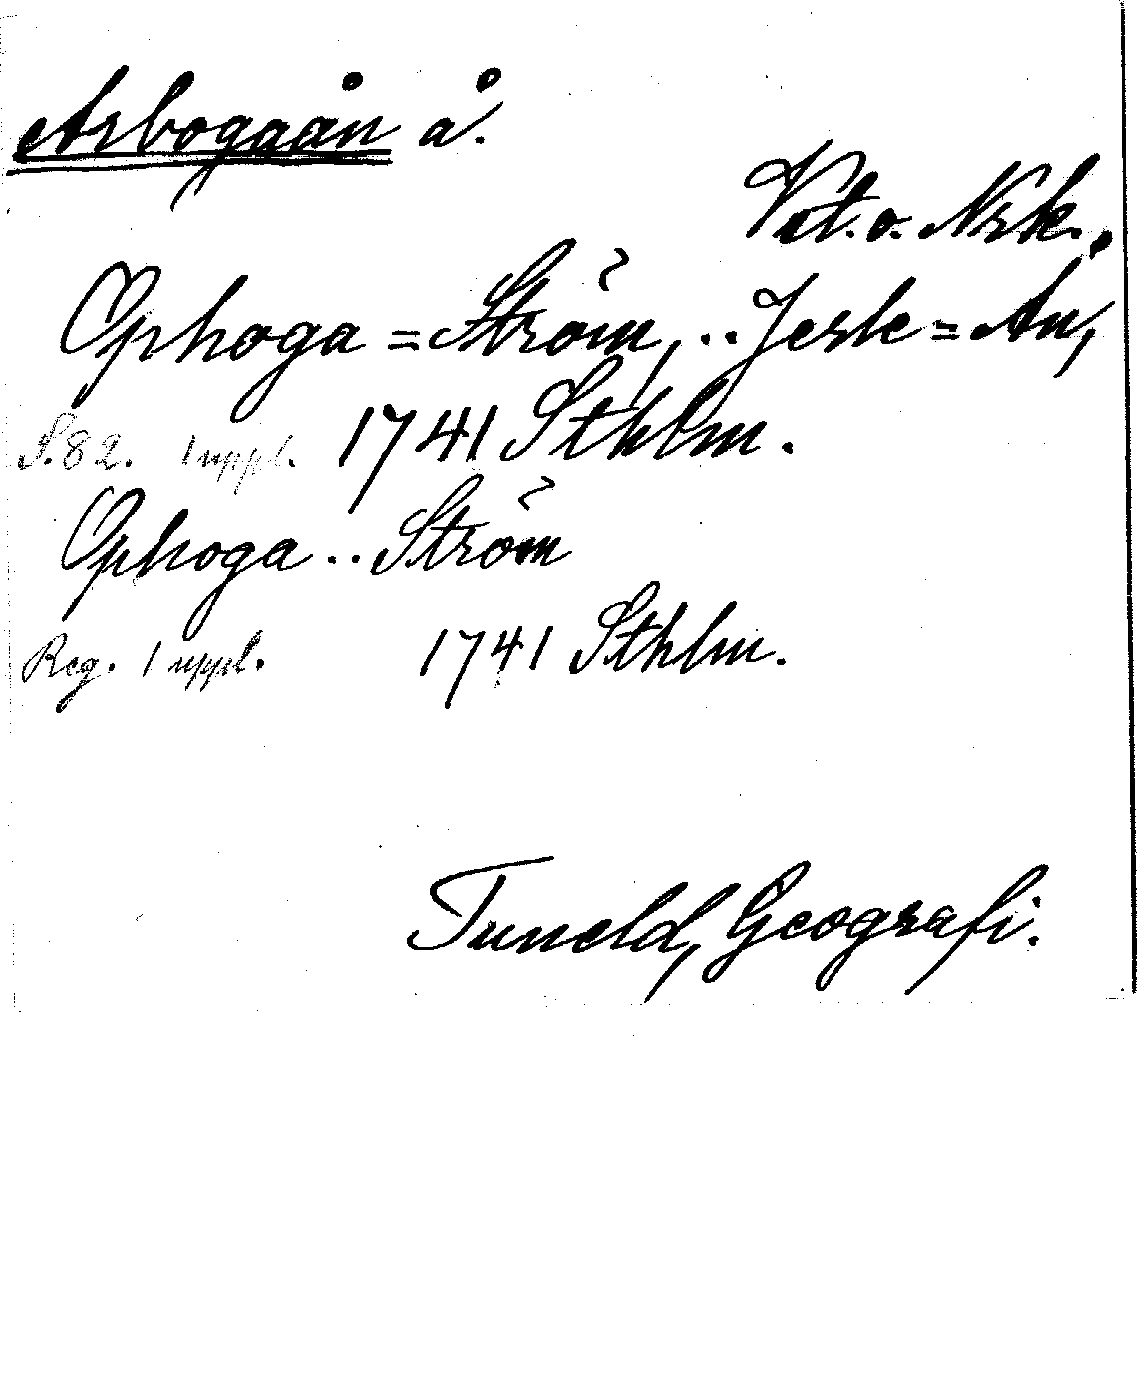 Arbogaån å.
Vstl. o. Nrk.
Ophoga = Ström, .. Jerle = Ån,
S. 82. 1 uppl. 1741 Sthlm.
Ophoga .. Ström
Reg. 1 uppl. 1741 Sthlm.
Tuneld, Geografi.